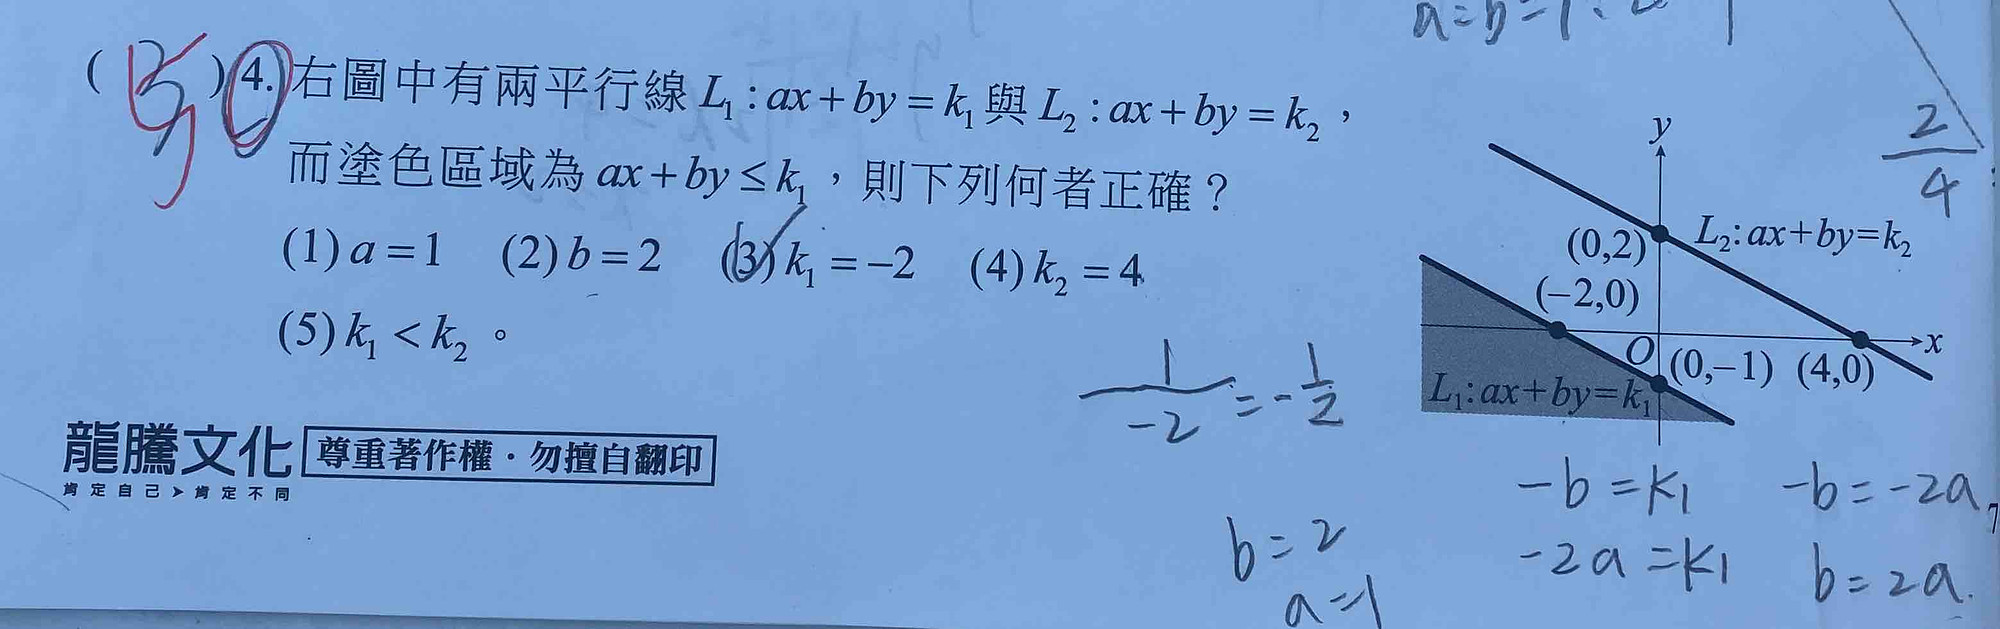 ( 5 ) 4. 右圖中有兩平行線 L₁ : ax + by = k₁ 與 L₂ : ax + by = k₂ ，
而塗色區域為 ax + by ≤ k₁ ，則下列何者正確？
(1) a = 1 (2) b = 2 (3) k₁ = −2 (4) k₂ = 4
(5) k₁ < k₂ 。
y
(0,2)
L₂: ax+by=k₂
(−2,0)
O
x
(0,−1) (4,0)
L₁: ax+by=k₁
2/4
1/-2 = -1/2
-b = k1
-b = -2a
-2a = k1
b = 2a.
b = 2
a = 1
龍騰文化
肯定自己➤肯定不同
尊重著作權．勿擅自翻印